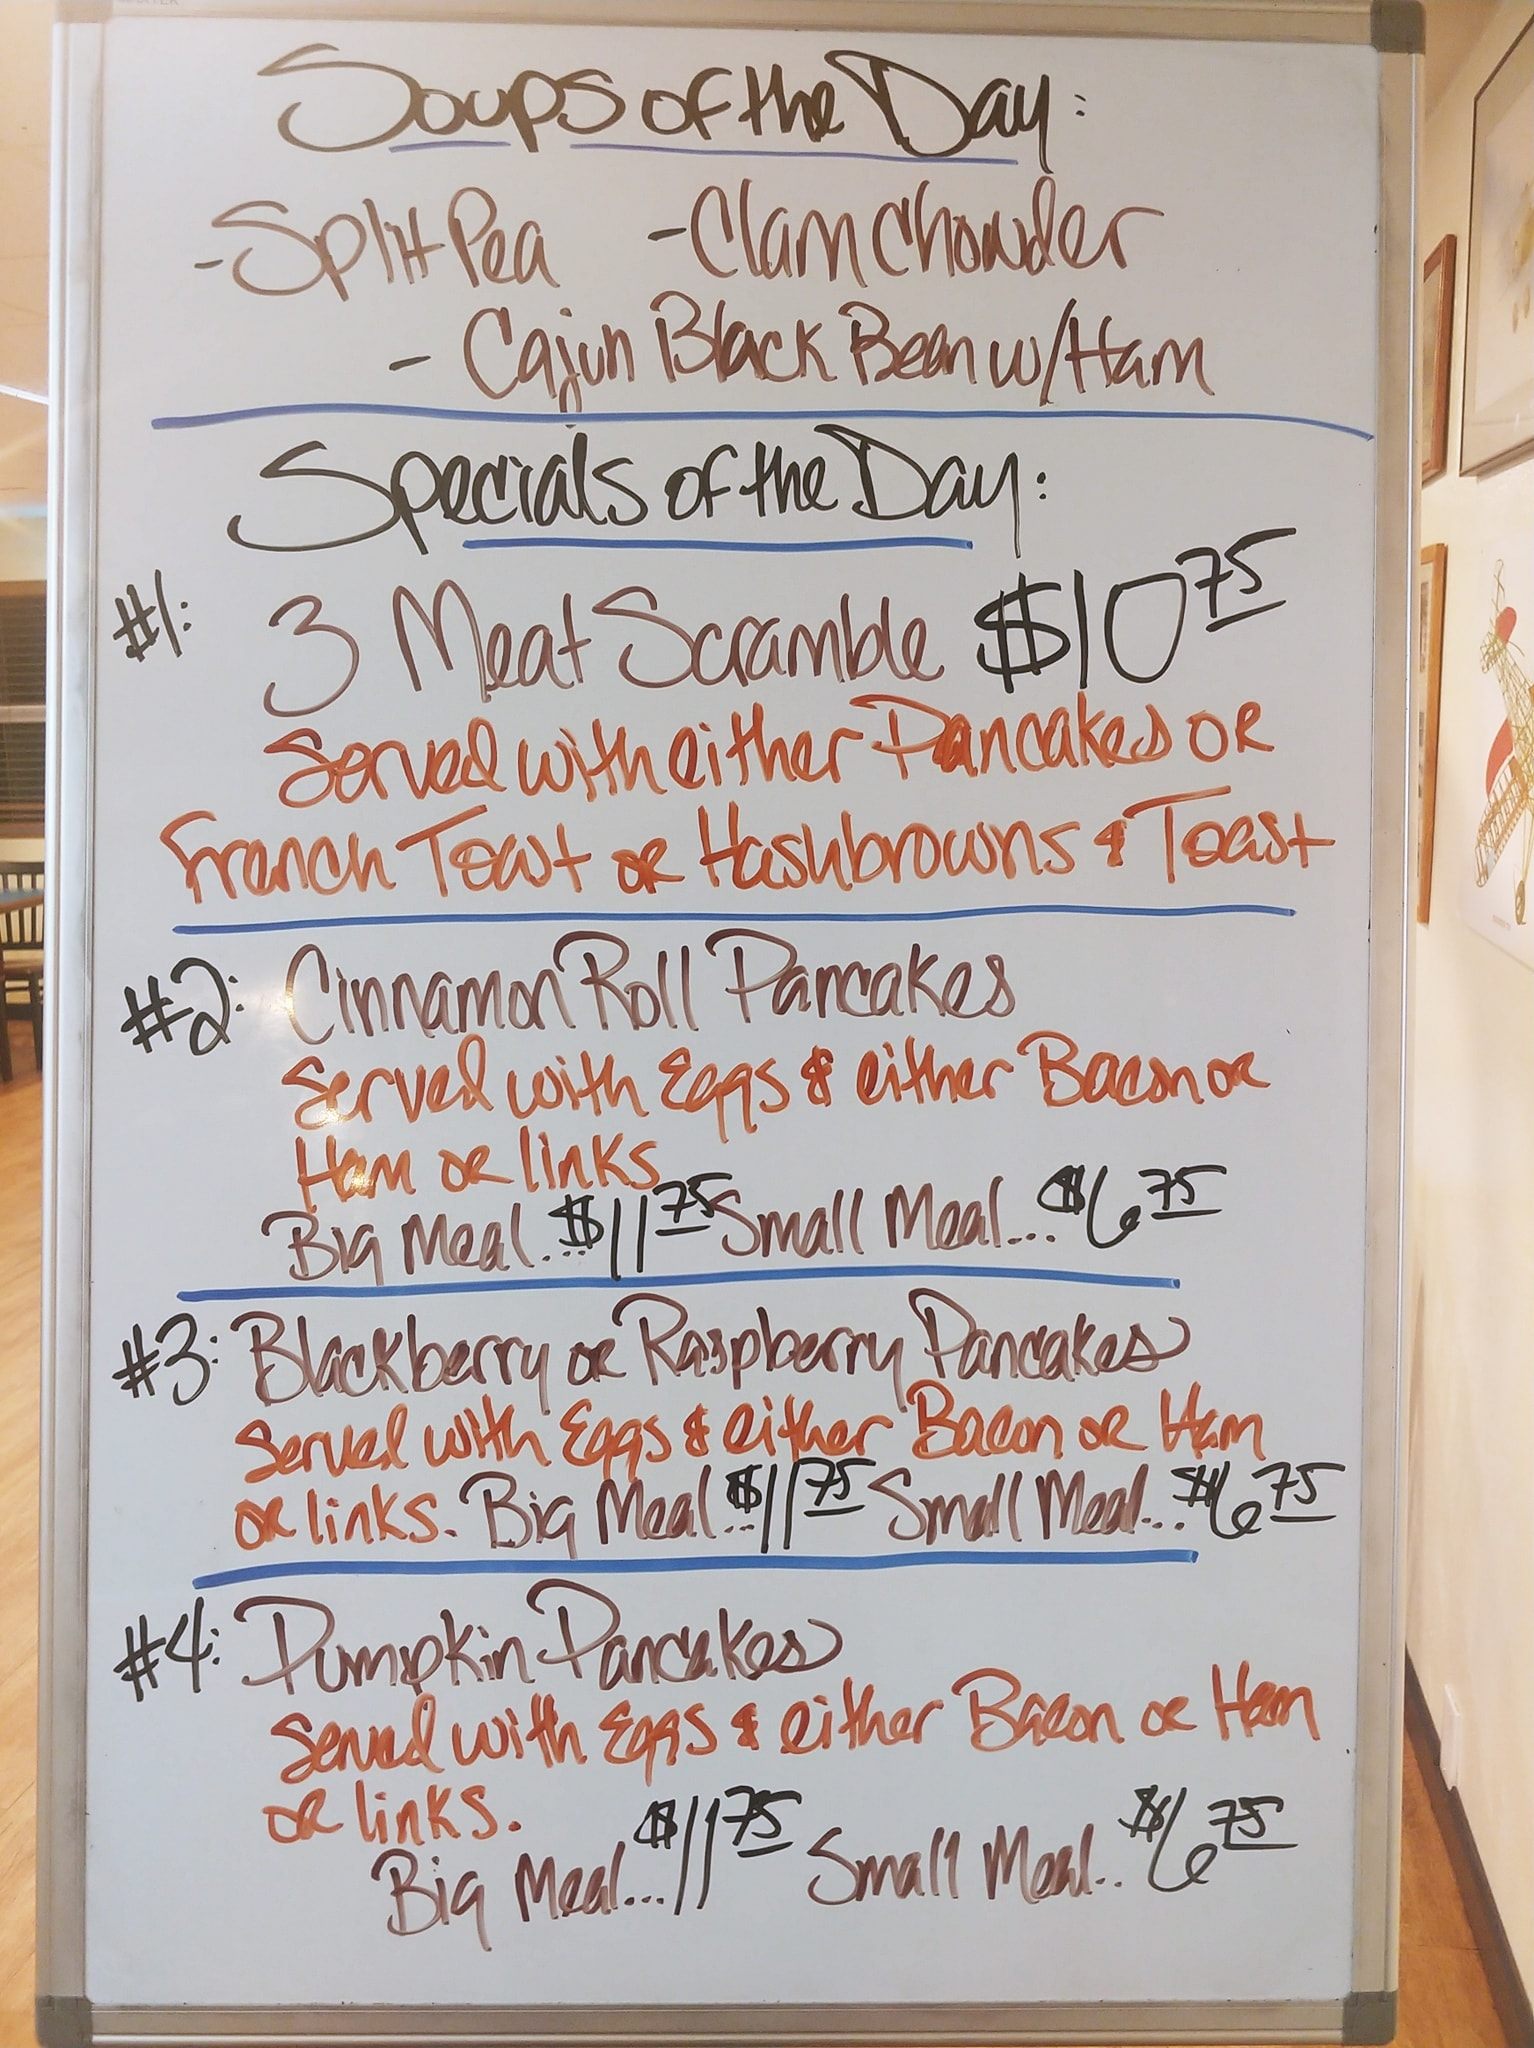 Soups of the Day:
-Split Pea -Clam Chowder
- Cajun Black Bean w/Ham
Specials of the Day:
#1: 3 Meat Scramble $10 75
Served with either Pancakes or
French Toast or Hashbrowns & Toast
#2: Cinnamon Roll Pancakes
Served with Eggs & either Bacon or
Ham or links
Big Meal...$11 75 Small Meal...$6 75
#3: Blackberry or Raspberry Pancakes
Served with Eggs & either Bacon or Ham
or links. Big Meal...$11 75 Small Meal...$6 75
#4: Pumpkin Pancakes
Served with Eggs & either Bacon or Ham
or links.
Big Meal...$11 75 Small Meal..$6 75